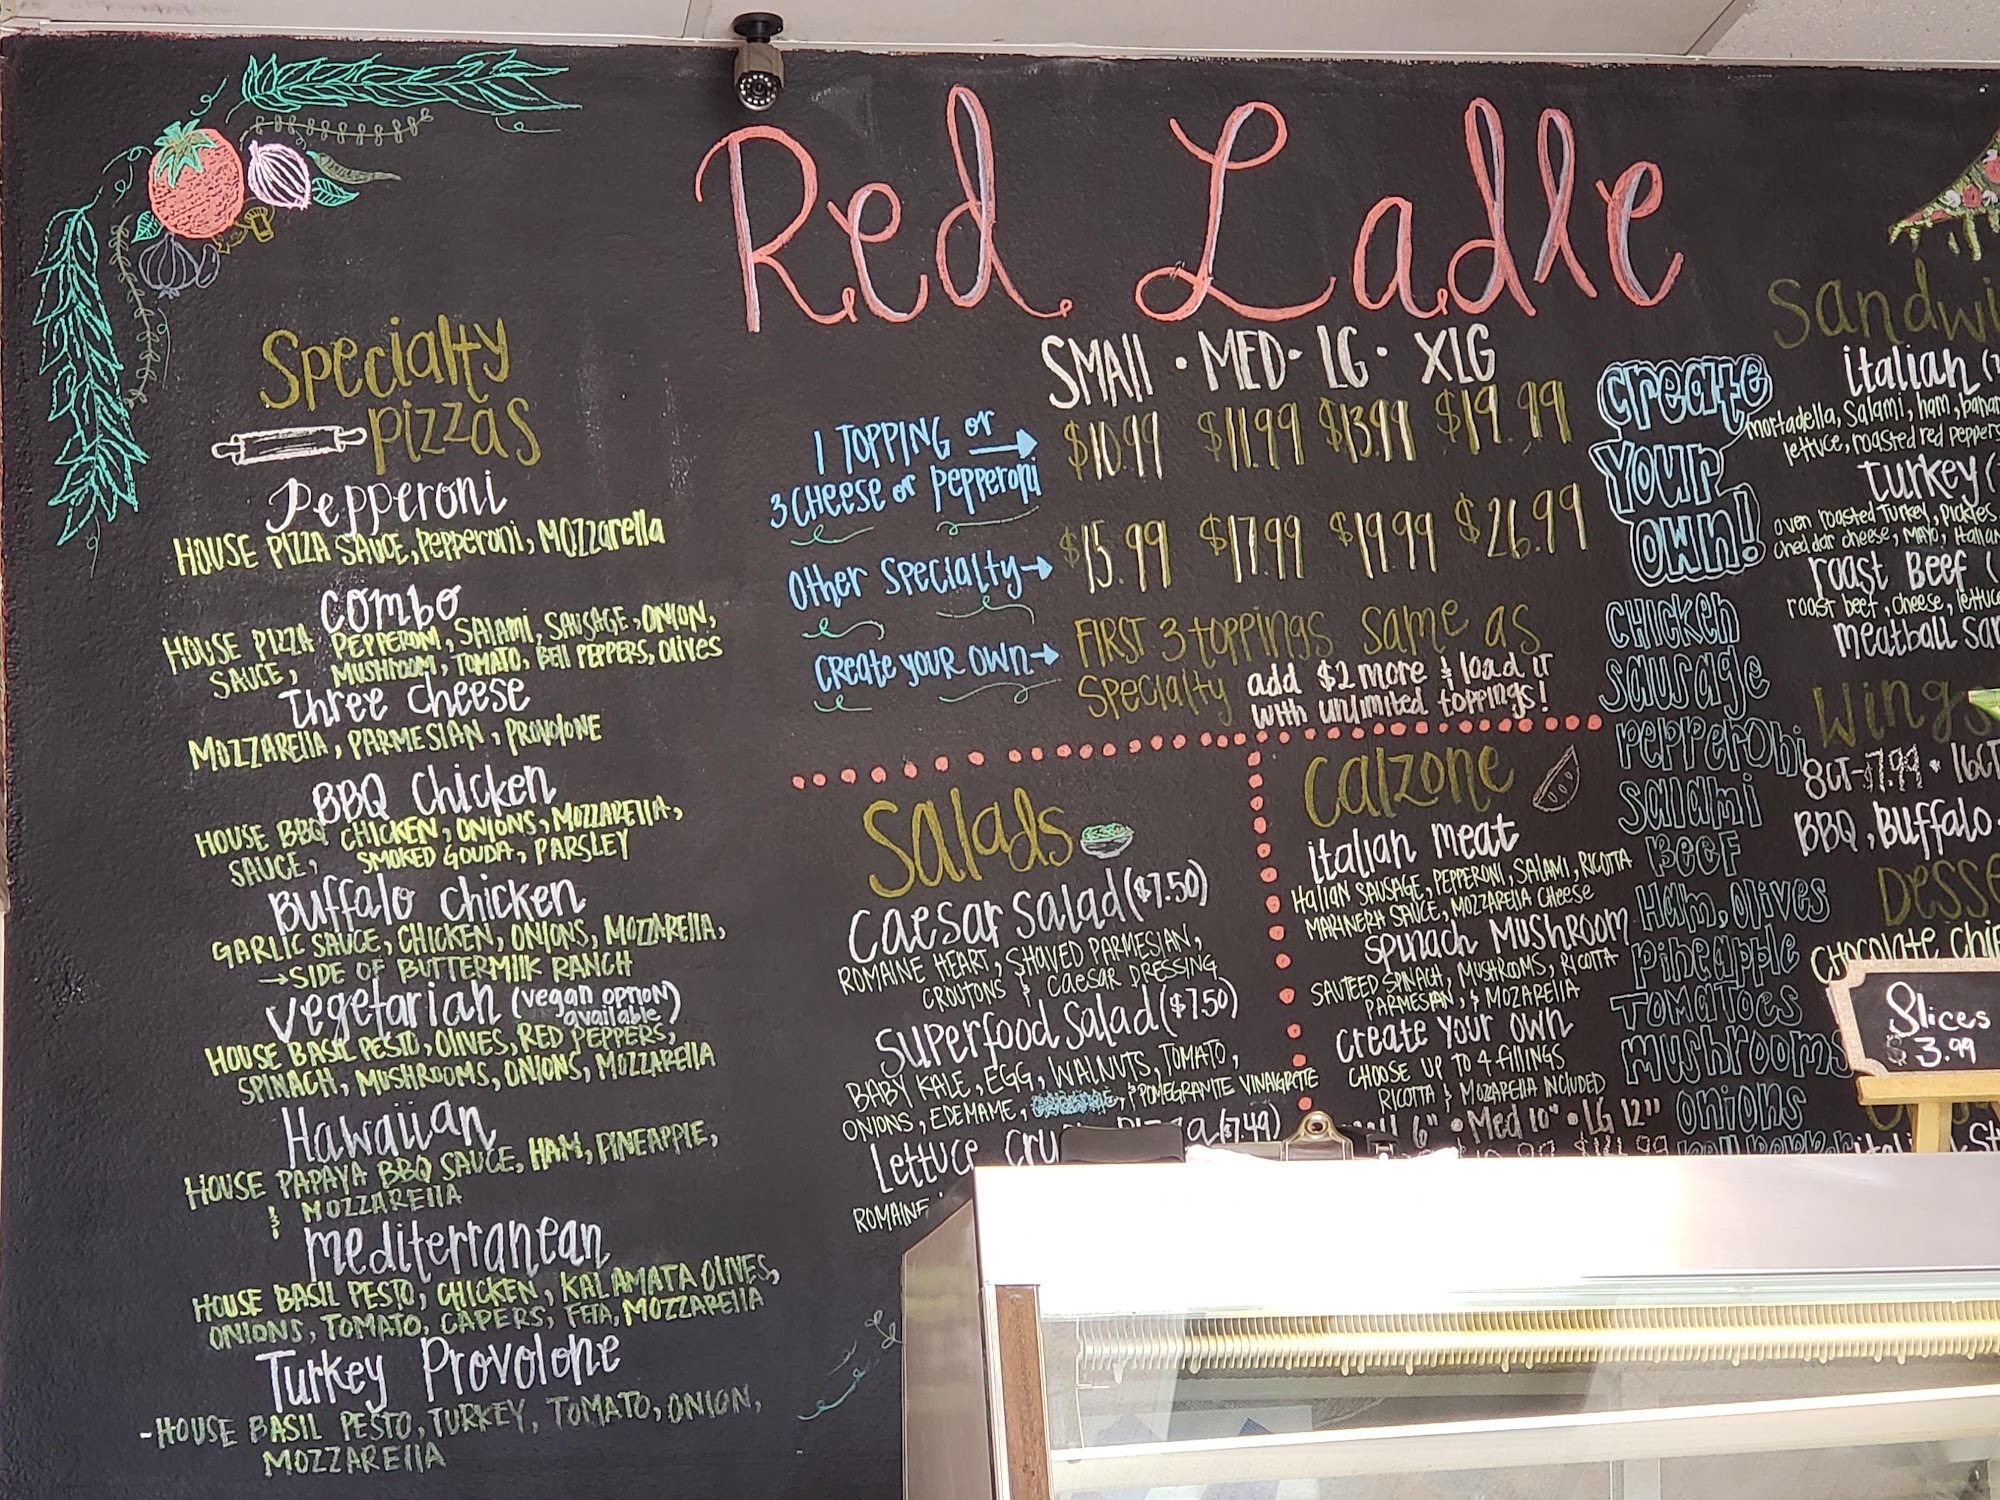 Red Ladle
Specialty
pizzas
Pepperoni
HOUSE PIZZA SAUCE, Pepperoni, MOZZarella
Combo
HOUSE PIZZA PEPPERONI, SALAMI, SAUSAGE, ONION,
SAUCE, MUSHROOM, TOMATO, BEll PEPPERS, Olives
Three Cheese
MOZZARELLA, PARMESIAN, PROVOLONE
BBQ Chicken
HOUSE BBQ CHICKEN, ONIONS, MOZZARELLA,
SAUCE, SMOKED GOUDA, PARSLEY
Buffalo Chicken
GARLIC SAUCE, CHICKEN, ONIONS, MOZZARELLA,
→SIDE OF BUTTERMILK RANCH
Vegetarian (vegan OPTION
available)
HOUSE BASIL PESTO, OLIVES, RED PEPPERS,
SPINACH, MUSHROOMS, ONIONS, MOZZARELLA
Hawaiian
HOUSE PAPAYA BBQ SAUCE, HAM, PINEAPPLE,
& MOZZARELLA
Mediterranean
HOUSE BASIL PESTO, CHICKEN, KALAMATA OLIVES,
ONIONS, TOMATO, CAPERS, FETA, MOZZARELLA
Turkey Provolone
-HOUSE BASIL PESTO, TURKEY, TOMATO, ONION,
MOZZARELLA
SMALL · MED · LG · XLG
1 TOPPING or →
3 CHEESE or Pepperoni
$10.99 $11.99 $13.99 $19.99
Other Specialty→ $15.99 $17.99 $19.99 $26.99
Create your own→ FIRST 3 toppings same as
Specialty add $2 more & load it
with unlimited toppings!
Salads
Caesar Salad ($7.50)
ROMAINE HEART, SHAVED PARMESIAN,
CROUTONS & Caesar DRESSING
Superfood Salad ($7.50)
BABY KALE, EGG, WALNUTS, TOMATO,
ONIONS, EDEMAME, & POMEGRANITE VINAIGRETTE
Lettuce
ROMAINE
Calzone
italian meat
Italian SAUSAGE, PEPPERONI, SALAMI, RICOTTA
MARINERA SAUCE, MOZZARELLA Cheese
Spinach MUSHROOM
SAUTEED SPINACH, MUSHROOMS, RICOTTA
PARMESIAN, & MOZARELLA
create your own
CHOOSE UP TO 4 fillings
RICOTTA & MOZARELLA INCLUDED
6" · Med 10" · LG 12"
create
your
own!
CHICKEN
Sausage
PEPPERONI
salami
BEEF
Ham, Olives
Pineapple
TOMATOES
mushrooms
onions
italian
mortadella, Salami, ham,
lettuce, roasted red peppers
Turkey
oven roasted Turkey, Pickles
cheddar cheese, MAYO,
roast Beef
roast beef, cheese,
meatball
Wings
8CT-$7.99 ·
BBQ, Buffalo
Chocolate Chip
Slices
$3.99